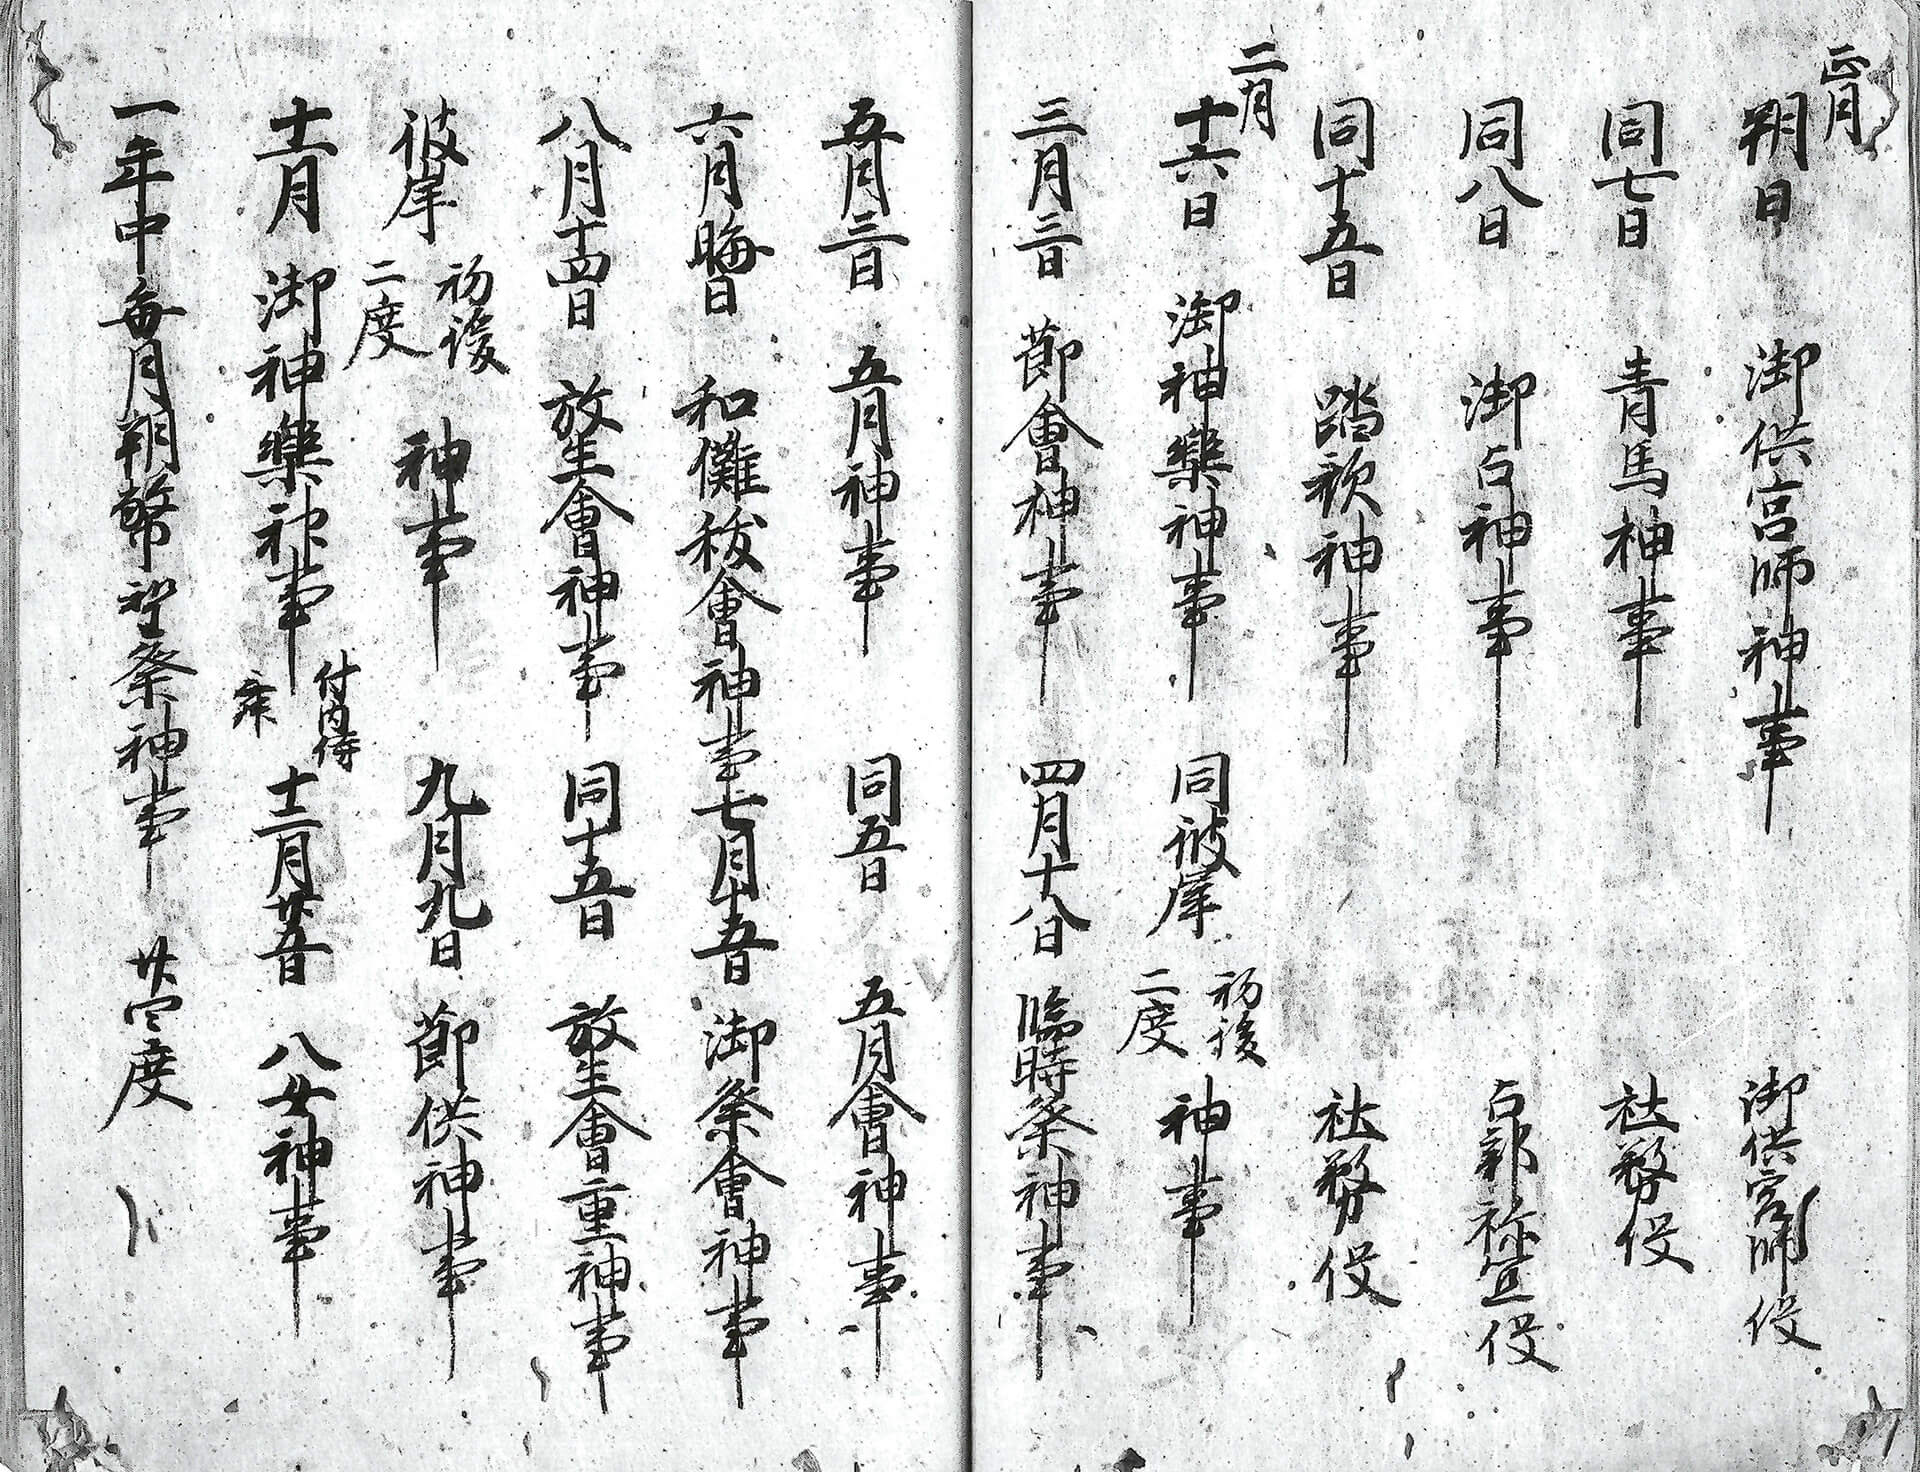 正月
朔日 御供宮師神事 御供宮師役
同七日 青馬神事 社務役
同八日 御占神事 占部祢宜役
同十五日 踏歌神事 社務役
二月
十六日 御神樂神事 同彼岸 初後二度 神事
三月三日 節會神事 四月十八日 臨時祭神事
五月三日 五月神事 同五日 五月會神事
六月晦日 和儺秡會神事 七月十五日 御祭會神事
八月十四日 放生會神事 同十五日 放生會重神事
彼岸 初後二度 神事 九月九日 節供神事
十一月 御神樂神事 付内侍 十二月廿五日 八女神事
一年中毎月朔幣望祭神事 廿四度